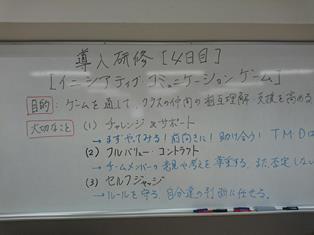 導入研修 [4日目]
[イニシアティブ コミュニケーション ゲーム]
目的:ゲームを通して、クラスの仲間の相互理解・交換を高める
大切なこと (1) チャレンジ&サポート
→まずやってみる!前向きに!助け合う! TMD
(2) フルバリュー・コントラクト
→チームメンバーの意見や考えを尊重する。まず、否定しない
(3) セルフジャッジ
→ルールを守る。自分達の判断に任せる。